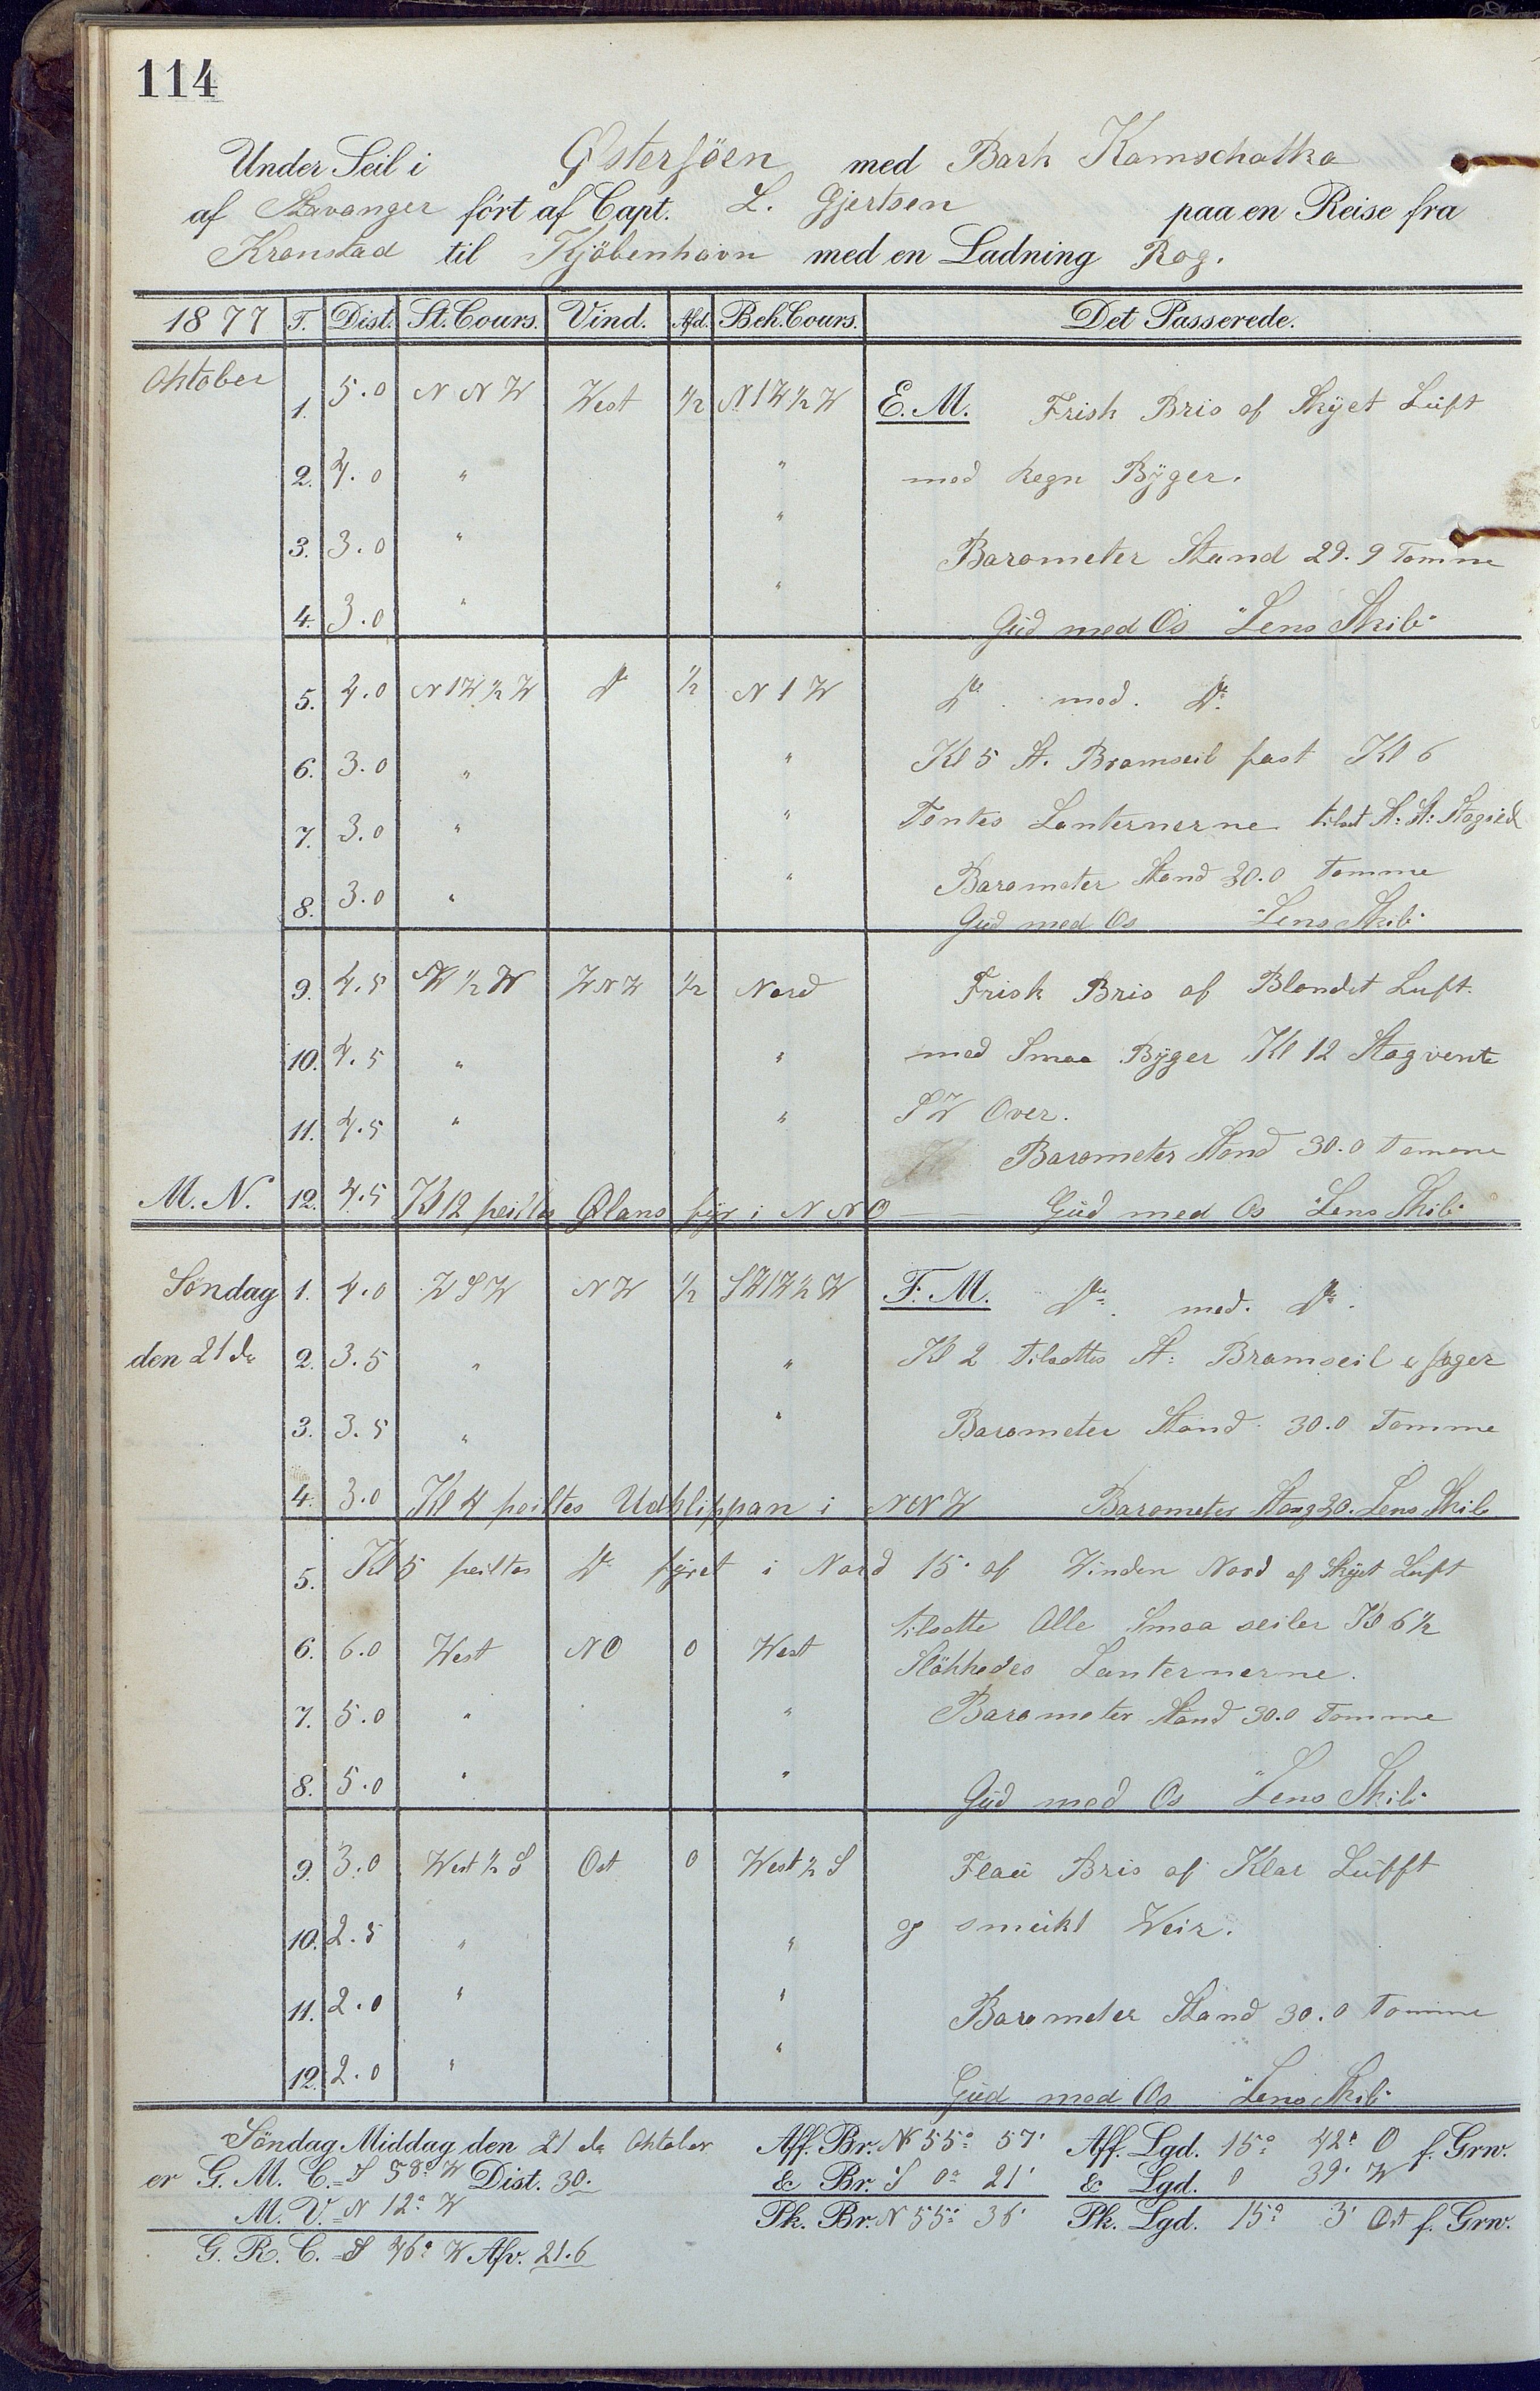 114
Under Seil i Østersöen med Bark Kamschatka
af Stavanger fört af Capt. L. Gjertsen paa en Reise fra
Kronstad til Kjöbenhavn med en Ladning Rog.
1877 T. Dist. St. Cours. Vind. Afd. Beh. Cours. Det Passerede.
Oktober 1. 5.0 N N W West 1/2 N 1 W 1/2 W E. M. Frisk Bris af Skÿet Lüft
2. 4.0 " " med Regn Bÿger.
3. 3.0 " " Barometer Stand 29.9 Tomme
4. 3.0 " " Güd med Os "Lens Skib"
5. 4.0 N 1 W 1/2 W do 1/2 N 1 W do med. do
6. 3.0 " " Kl 5 St. Bramseil fast Kl 6
7. 3.0 " " Tentes Lanternerne tilsat St: St: Stagseil
8. 3.0 " " Barometer Stand 30.0 Tomme
Güd med Os "Lens Skib"
9. 4.5 N 1/2 W WNW 1/2 Nord Frisk Bris af Blandet Luft
10. 4.5 " " med Smaa Bÿger Kl 12 Stagvente
11. 4.5 " " SW Over.
Barometer Stand 30.0 Tomme
M. N. 12. 4.5 Kl 12 peiltes Ølans fÿr i N N O Güd med Os "Lens Skib"
Söndag 1. 4.0 W S W N W 1/2 SW 1 W 1/2 W F. M. do med. do
den 21 de 2. 3.5 " " Kl 2 Tilsattes St: Bramseil & Jager
3. 3.5 " " Barometer Stand 30.0 Tomme
4. 3.0 Kl 4 peiltes Udklippan i NNW Barometer Stang 30. Lens Skib
5. Kl 5 peiltes do fÿret i Nord 15' af Vinden Nord af Skÿet Lüft
tilsatte Alle Smaa seiler Kl 6 1/2
6. 6.0 West NO 0 West Slökkedes Lanternerne.
7. 5.0 " " Barometer Stand 30.0 Tomme
8. 5.0 " " Güd med Os "Lens Skib"
9. 3.0 West 1/2 S Ost 0 West 1/2 S Flaü Bris af Klar Lüfft
10. 2.5 " " og smükt Veir.
11. 2.0 " " Barometer Stand 30.0 Tomme
12. 2.0 " " Güd med Os "Lens Skib"
Söndag Middag den 21 de Oktober Aff. Br. N 55° 57' Aff. Lgd. 15° 42' O f. Grw.
er G. M. C. = S 58° W Dist. 30. & Br. S 0° 21' & Lgd. 0 39' W
M. V. = N 12° W Pk. Br. N 55° 36' Pk. Lgd. 15° 3' Ost f. Grw.
G. R. C. = S 46° W Afv. 21.6